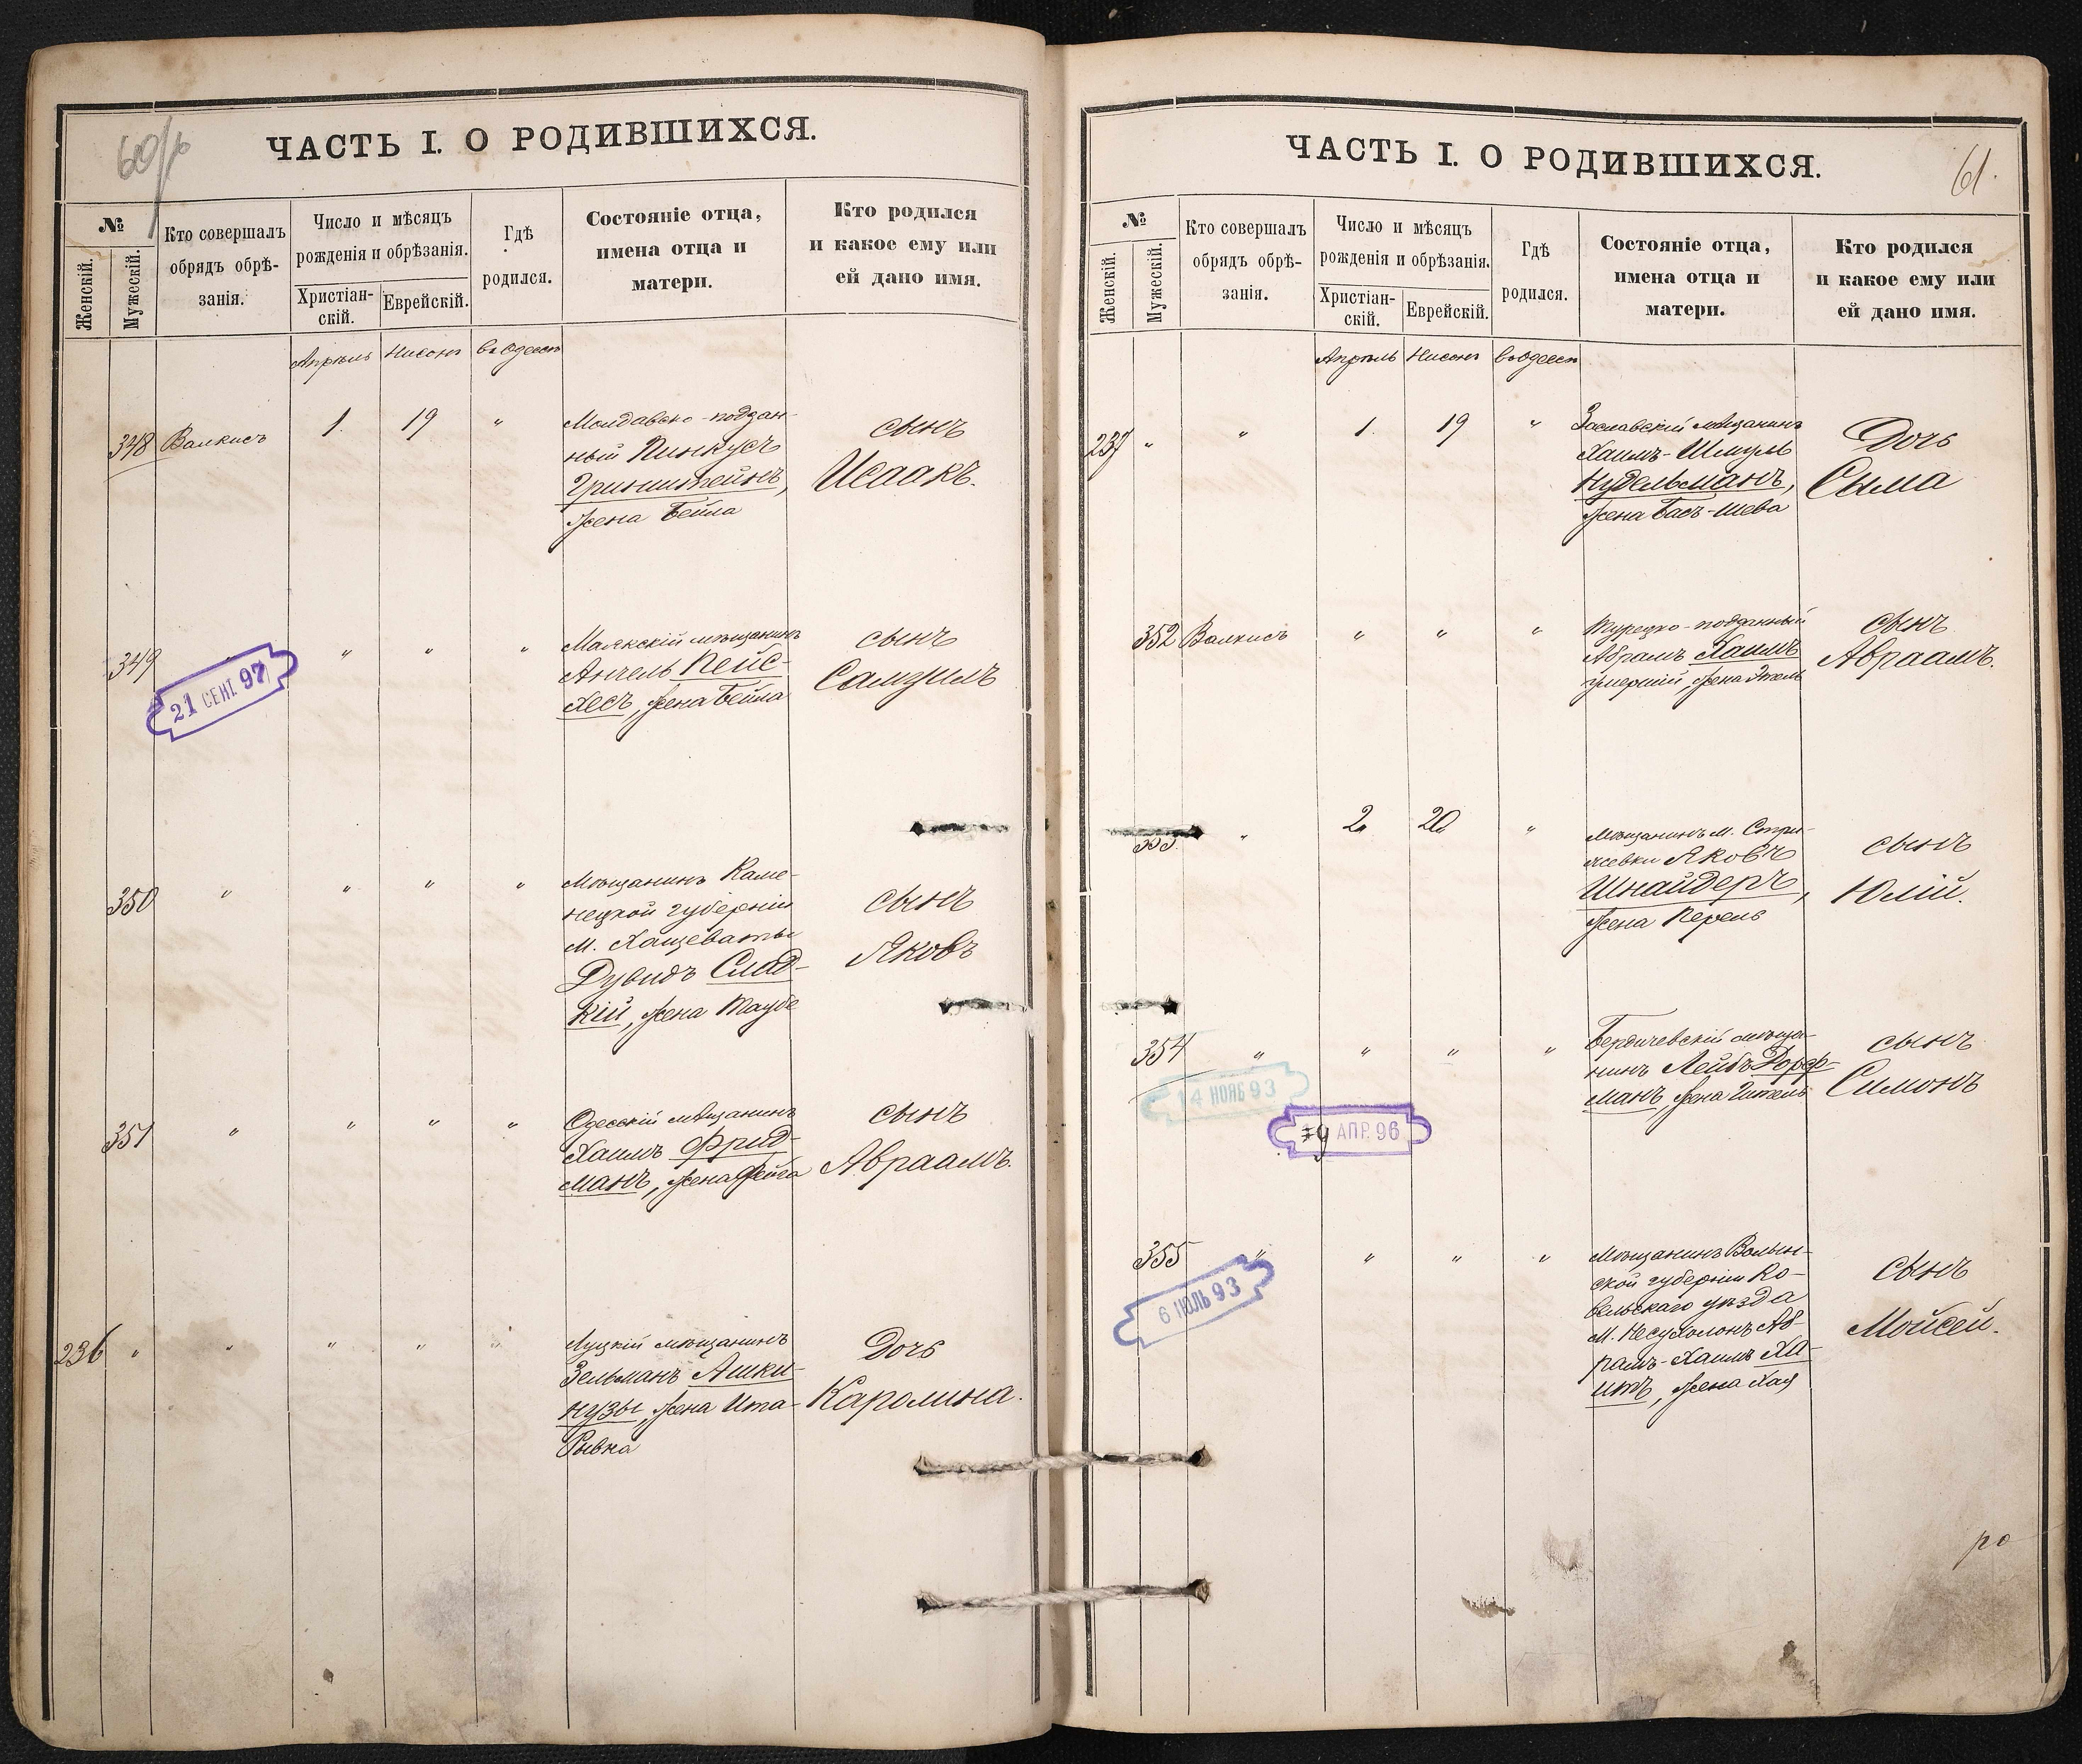 60/б
ЧАСТЬ I. О РОДИВШИХСЯ.
№
Женскій.
Мужескій.
Кто совершалъ
обрядъ обрѣ-
занія.
Число и мѣсяцъ
рожденія и обрѣзанія.
Христіан-
скій.
Еврейскій.
Гдѣ
родился.
Состояніе отца,
имена отца и
матери.
Кто родился
и какое ему или
ей дано имя.
Апрѣль Нисонъ въ Одессѣ
348 Валкисъ 1. 19 "
Молдавско-поддан-
ный Пинкусъ
Гринштейнъ,
жена Бейла
сынъ
Исаакъ.
349 " " "
21 СЕНТ 97
Маякскій мѣщанинъ
Анчель Пейс-
хесъ, жена Бейла
сынъ
Самуилъ
350 " " " "
Мѣщанинъ Каме-
нецкой губерніи
м. Хащеваты
Дувидъ Слад-
кій, жена Таубе
сынъ
Яковъ
351 " " " "
Одесскій мѣщанинъ
Хаимъ Фрид-
манъ, жена Фейга
сынъ
Авраамъ.
236 " " " " "
Луцкій мѣщанинъ
Зельманъ Ашки-
нузы, жена Ита-
Рывка
Дочь
Каролина.
61.
ЧАСТЬ I. О РОДИВШИХСЯ.
№
Женскій.
Мужескій.
Кто совершалъ
обрядъ обрѣ-
занія.
Число и мѣсяцъ
рожденія и обрѣзанія.
Христіан-
скій.
Еврейскій.
Гдѣ
родился.
Состояніе отца,
имена отца и
матери.
Кто родился
и какое ему или
ей дано имя.
Апрѣль Нисонъ въ Одессѣ
237 " " 1. 19 "
Заславскій мѣщанинъ
Хаимъ-Шмуль
Нудельманъ,
жена Бась-Шева
Дочь
Сыма
352 Валкисъ " " "
Турецко-подданный
Абрамъ Хаимъ
умершій, жена Этель
сынъ
Авраамъ.
353. " 2. 20. "
Мѣщанинъ м. Стри-
жевки Яковъ
Шнайдеръ,
жена Перель
сынъ
Юлій.
354 " " " "
14 НОЯБ 93
19 АПР. 96
Бердичевскій мѣща-
нинъ Лейбъ Дорф-
манъ, жена Гитель
сынъ
Симонъ
355 " " " "
6 ІЮЛЬ 93
Мѣщанинъ Волын-
ской губерніи Ко-
вельскаго уѣзда
м. Несухоионъ Аб-
рамъ-Хаимъ Ха-
итъ, жена Хая
сынъ
Мойсей.
ро